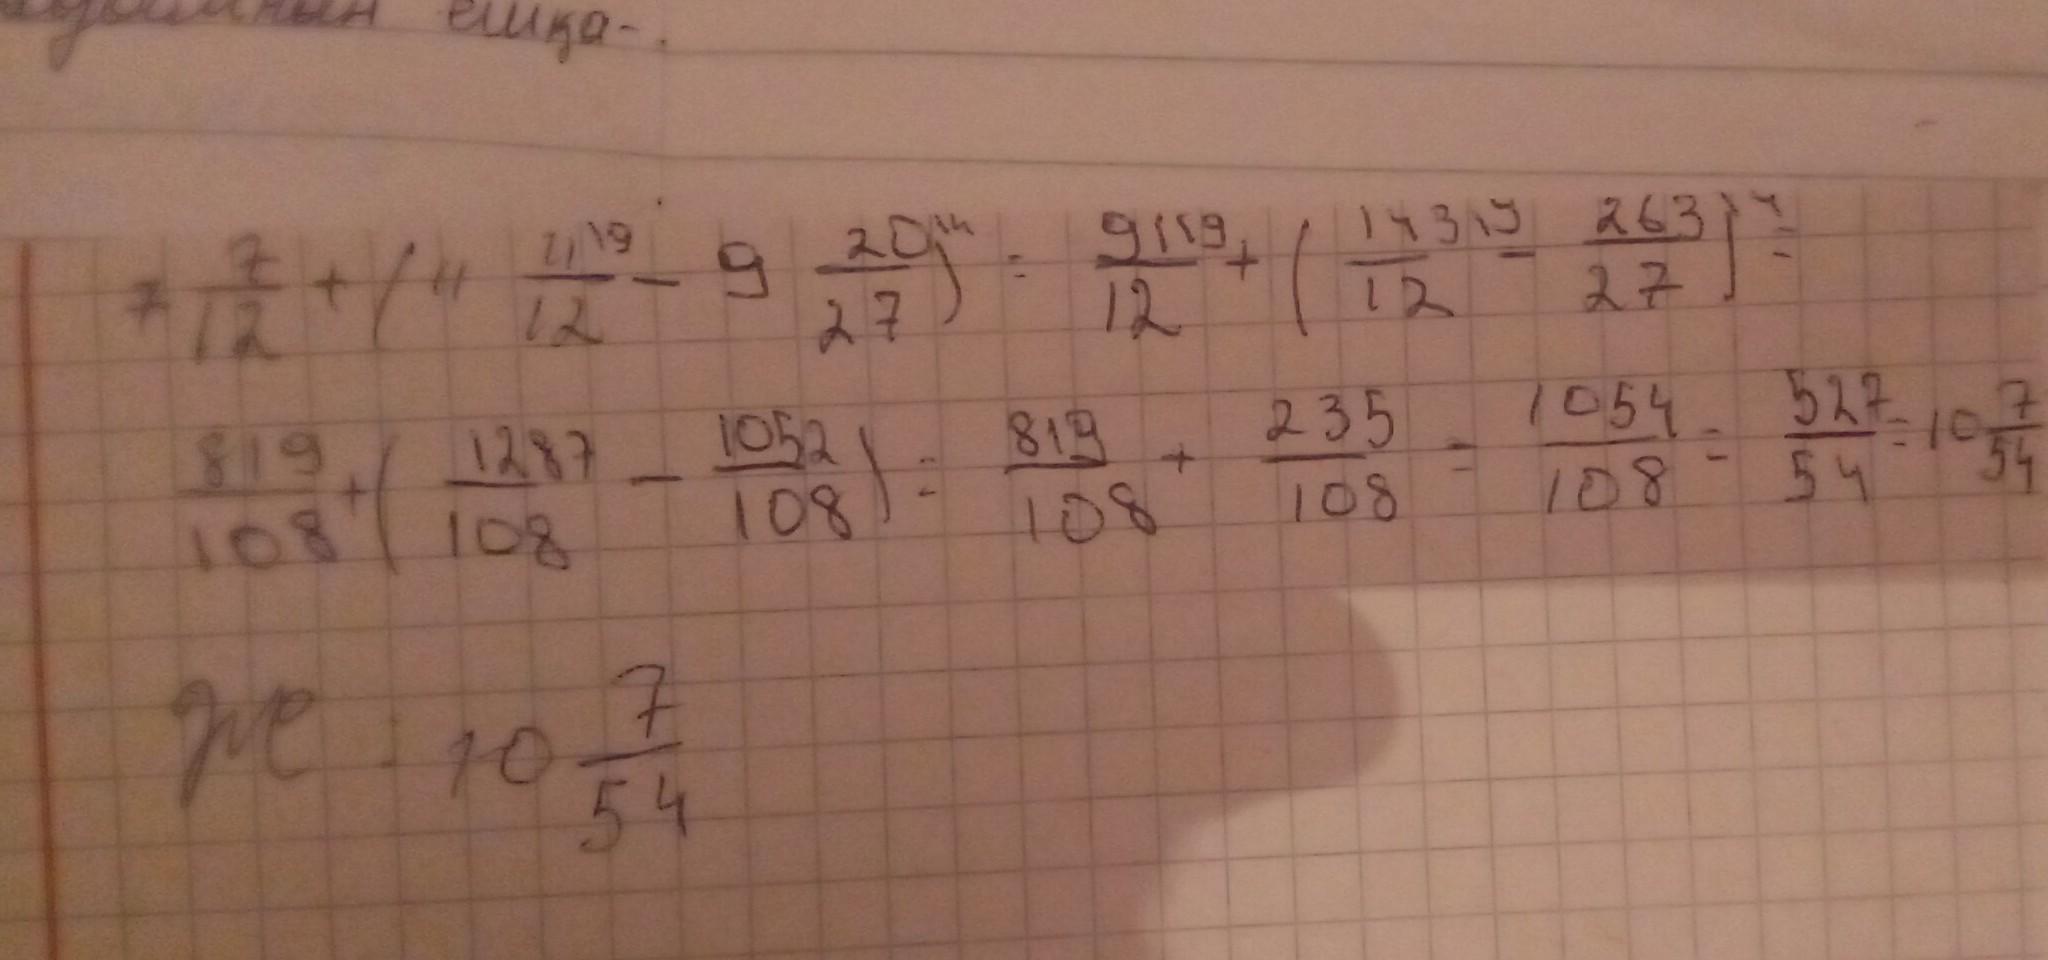 ешқа-.
7 7/12 + (11 11\9/12 - 9 20\4/27) = 91\9/12 + (143\9/12 - 263\4/27) =
819/108 + (1287/108 - 1052/108) = 819/108 + 235/108 = 1054/108 = 527/54 = 10 7/54
Ж : 10 7/54